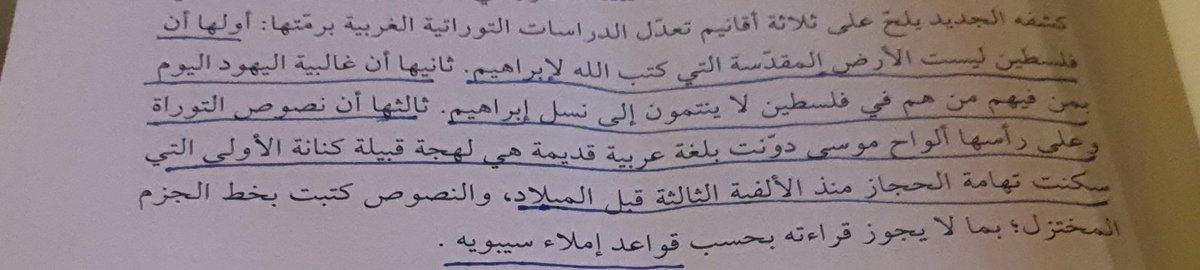 كشفه الجديد يلحّ على ثلاثة أقانيم تعدّل الدراسات التوراتية الغربية برمّتها: أولها أن
فلسطين ليست الأرض المقدّسة التي كتب الله لإبراهيم. ثانيها أن غالبية اليهود اليوم
بمن فيهم من هم في فلسطين لا ينتمون إلى نسل إبراهيم. ثالثها أن نصوص التوراة
وعلى رأسها ألواح موسى دوّنت بلغة عربية قديمة هي لهجة قبيلة كنانة الأولى التي
سكنت تهامة الحجاز منذ الألفية الثالثة قبل الميلاد، والنصوص كتبت بخط الجزم
المختزل؛ بما لا يجوز قراءته بحسب قواعد إملاء سيبويه.